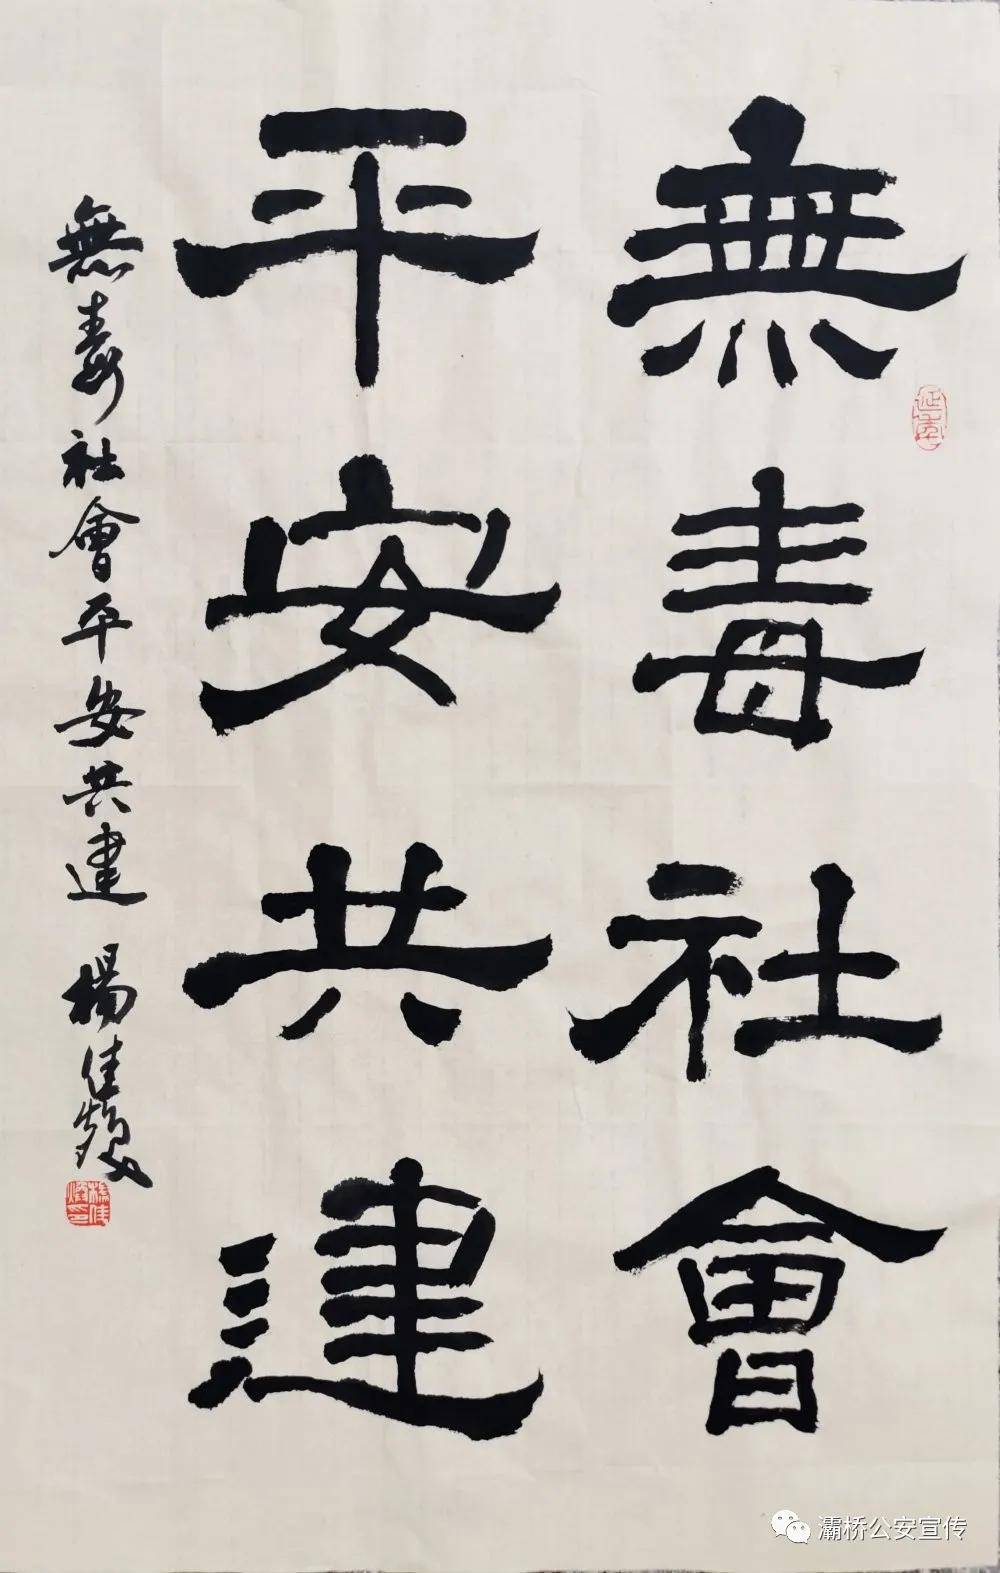 無毒社會
平安共建
無毒社會平安共建 楊佳
延年
灞桥公安宣传